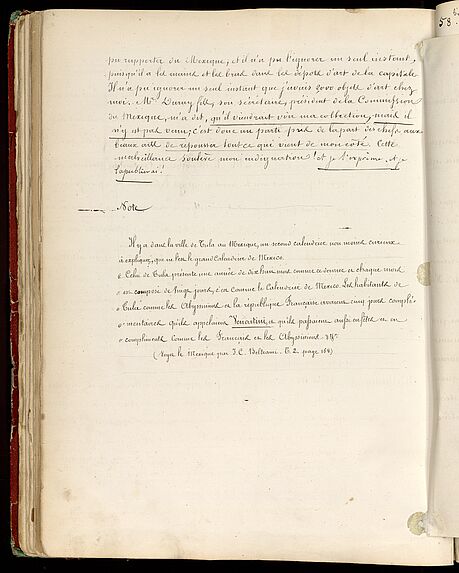 pu rapporter du Mexique, et il n'a pu l'ignorer un seul instant,
puisqu'il a les mains et les bras dans les dépots d'art de la capitale
Il n'a pu ignorer un seul instant que j'avais 2000 objets d'art chez
moi. Mr. Duruy fils, son secrétaire, président de la Commission
du Mexique, m'a dit, qu'il viendrait voir ma collection, mais il
n'y est pas venu; c'est donc un parti pris de la part des chefs aux
beaux arts de repousser tout ce qui vient de mon côté. Cette
malveillance soulève mon indignation! et je l'exprime. et je
la publierai!
Note
Il y a dans la ville de Tula au Mexique, un second calendrier non moins curieux
à expliquer, que ne l'est le grand Calendrier de Mexico.
Celui de Tula présente une année de dix huit mois comme ce dernier et chaque mois
est composé de vingt jours, c'est comme le Calendrier de Mexico. Les habitants de
Tula comme les Abyssiniens et la république Française avaient cinq jours complé
mentaires qu'ils appelaient et qu'ils passaient aussi en fêtes et en
comme les Français et les Abyssiniens.
(Voyez le Mexique par J. C. Beltrami. T. 2. page 164)
58.